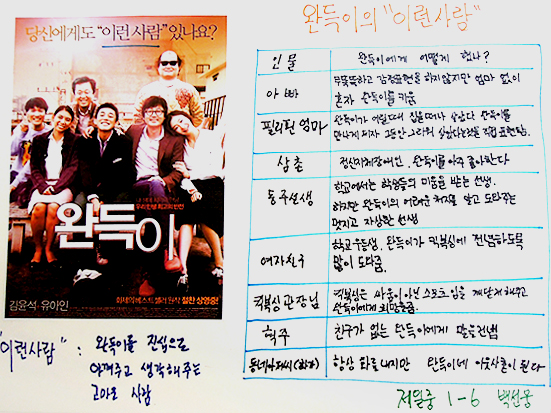 당신에게도 "이런 사람" 있나요?
우리 인생 최고의 반전
완득이
김윤석·유아인
화제의 베스트 셀러 원작 절찬 상영중!
"이런사람" : 완득이를 진심으로
아껴주고 생각해주는
고마운 사람
완득이의 "이런사람"
인물 완득이에게 어떻게 했나?
아빠 무뚝뚝하고 감정표현을 하지않지만 엄마 없이
혼자 완득이를 키움
필리핀 엄마 완득이가 어릴때 집을 떠나 살았다 완득이를
만나게 되자 그동안 그리워 했었다는것을 직접 표현함.
삼촌 정신지체장애인. 완득이를 아주 좋아한다
동주선생 학교에서는 학생들의 미움을 받는 선생.
하지만 완득이의 어려운 처지를 알고 도와주는
멋지고 자상한 선생
여자친구 학교 우등생. 완득이가 킥복싱에 전념하도록
많이 도와줌.
킥복싱 관장님 킥복싱은 싸움이 아닌 스포츠 임을 깨닫게 해주고
완득이에게 희망을줌.
혁주 친구가 없는 완득이에게 말을건넴
동네아저씨 항상 화를내지만 완득이네 이웃사촌이 된다
제일중 1-6 백선웅